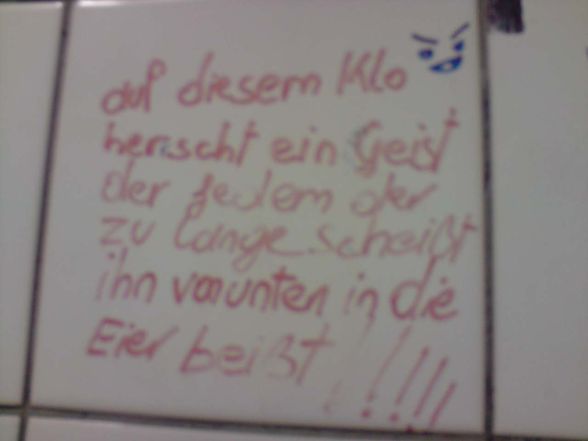 auf diesem Klo
herrscht ein Geist
der jedem der
zu lange scheißt
ihn vonunten in die
Eier beißt !!!!!